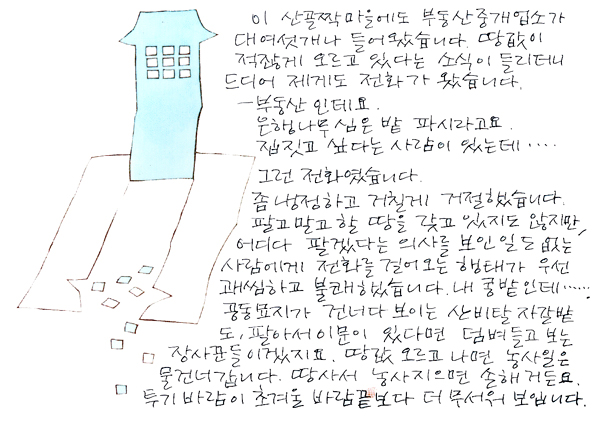 이 산골짝 마을에도 부동산중개업소가
대여섯개나 들어왔습니다. 땅값이
적잖게 오르고 있다는 소식이 들리더니
드디어 제게도 전화가 왔습니다.
-부동산인데요.
은행나무 심은 밭 파시라고요.
집짓고 싶다는 사람이 있는데....
그런 전화였습니다.
좀 냉정하고 거칠게 거절했습니다.
팔고말고 할 땅을 갖고 있지도 않지만,
어디다 팔겠다는 의사를 보인 일도 없는
사람에게 전화를 걸어오는 행태가 우선
괘씸하고 불쾌했습니다. 내 콩밭인데......
공동묘지가 건너다 보이는 산비탈 자갈밭
도, 팔아서 이문이 있다면 덤벼들고 보는
장사꾼들이겠지요. 땅값 오르고 나면 농사일은
물건너갑니다. 땅사서 농사지으면 손해거든요.
투기바람이 초겨울 바람끝보다 더 무서워 보입니다.